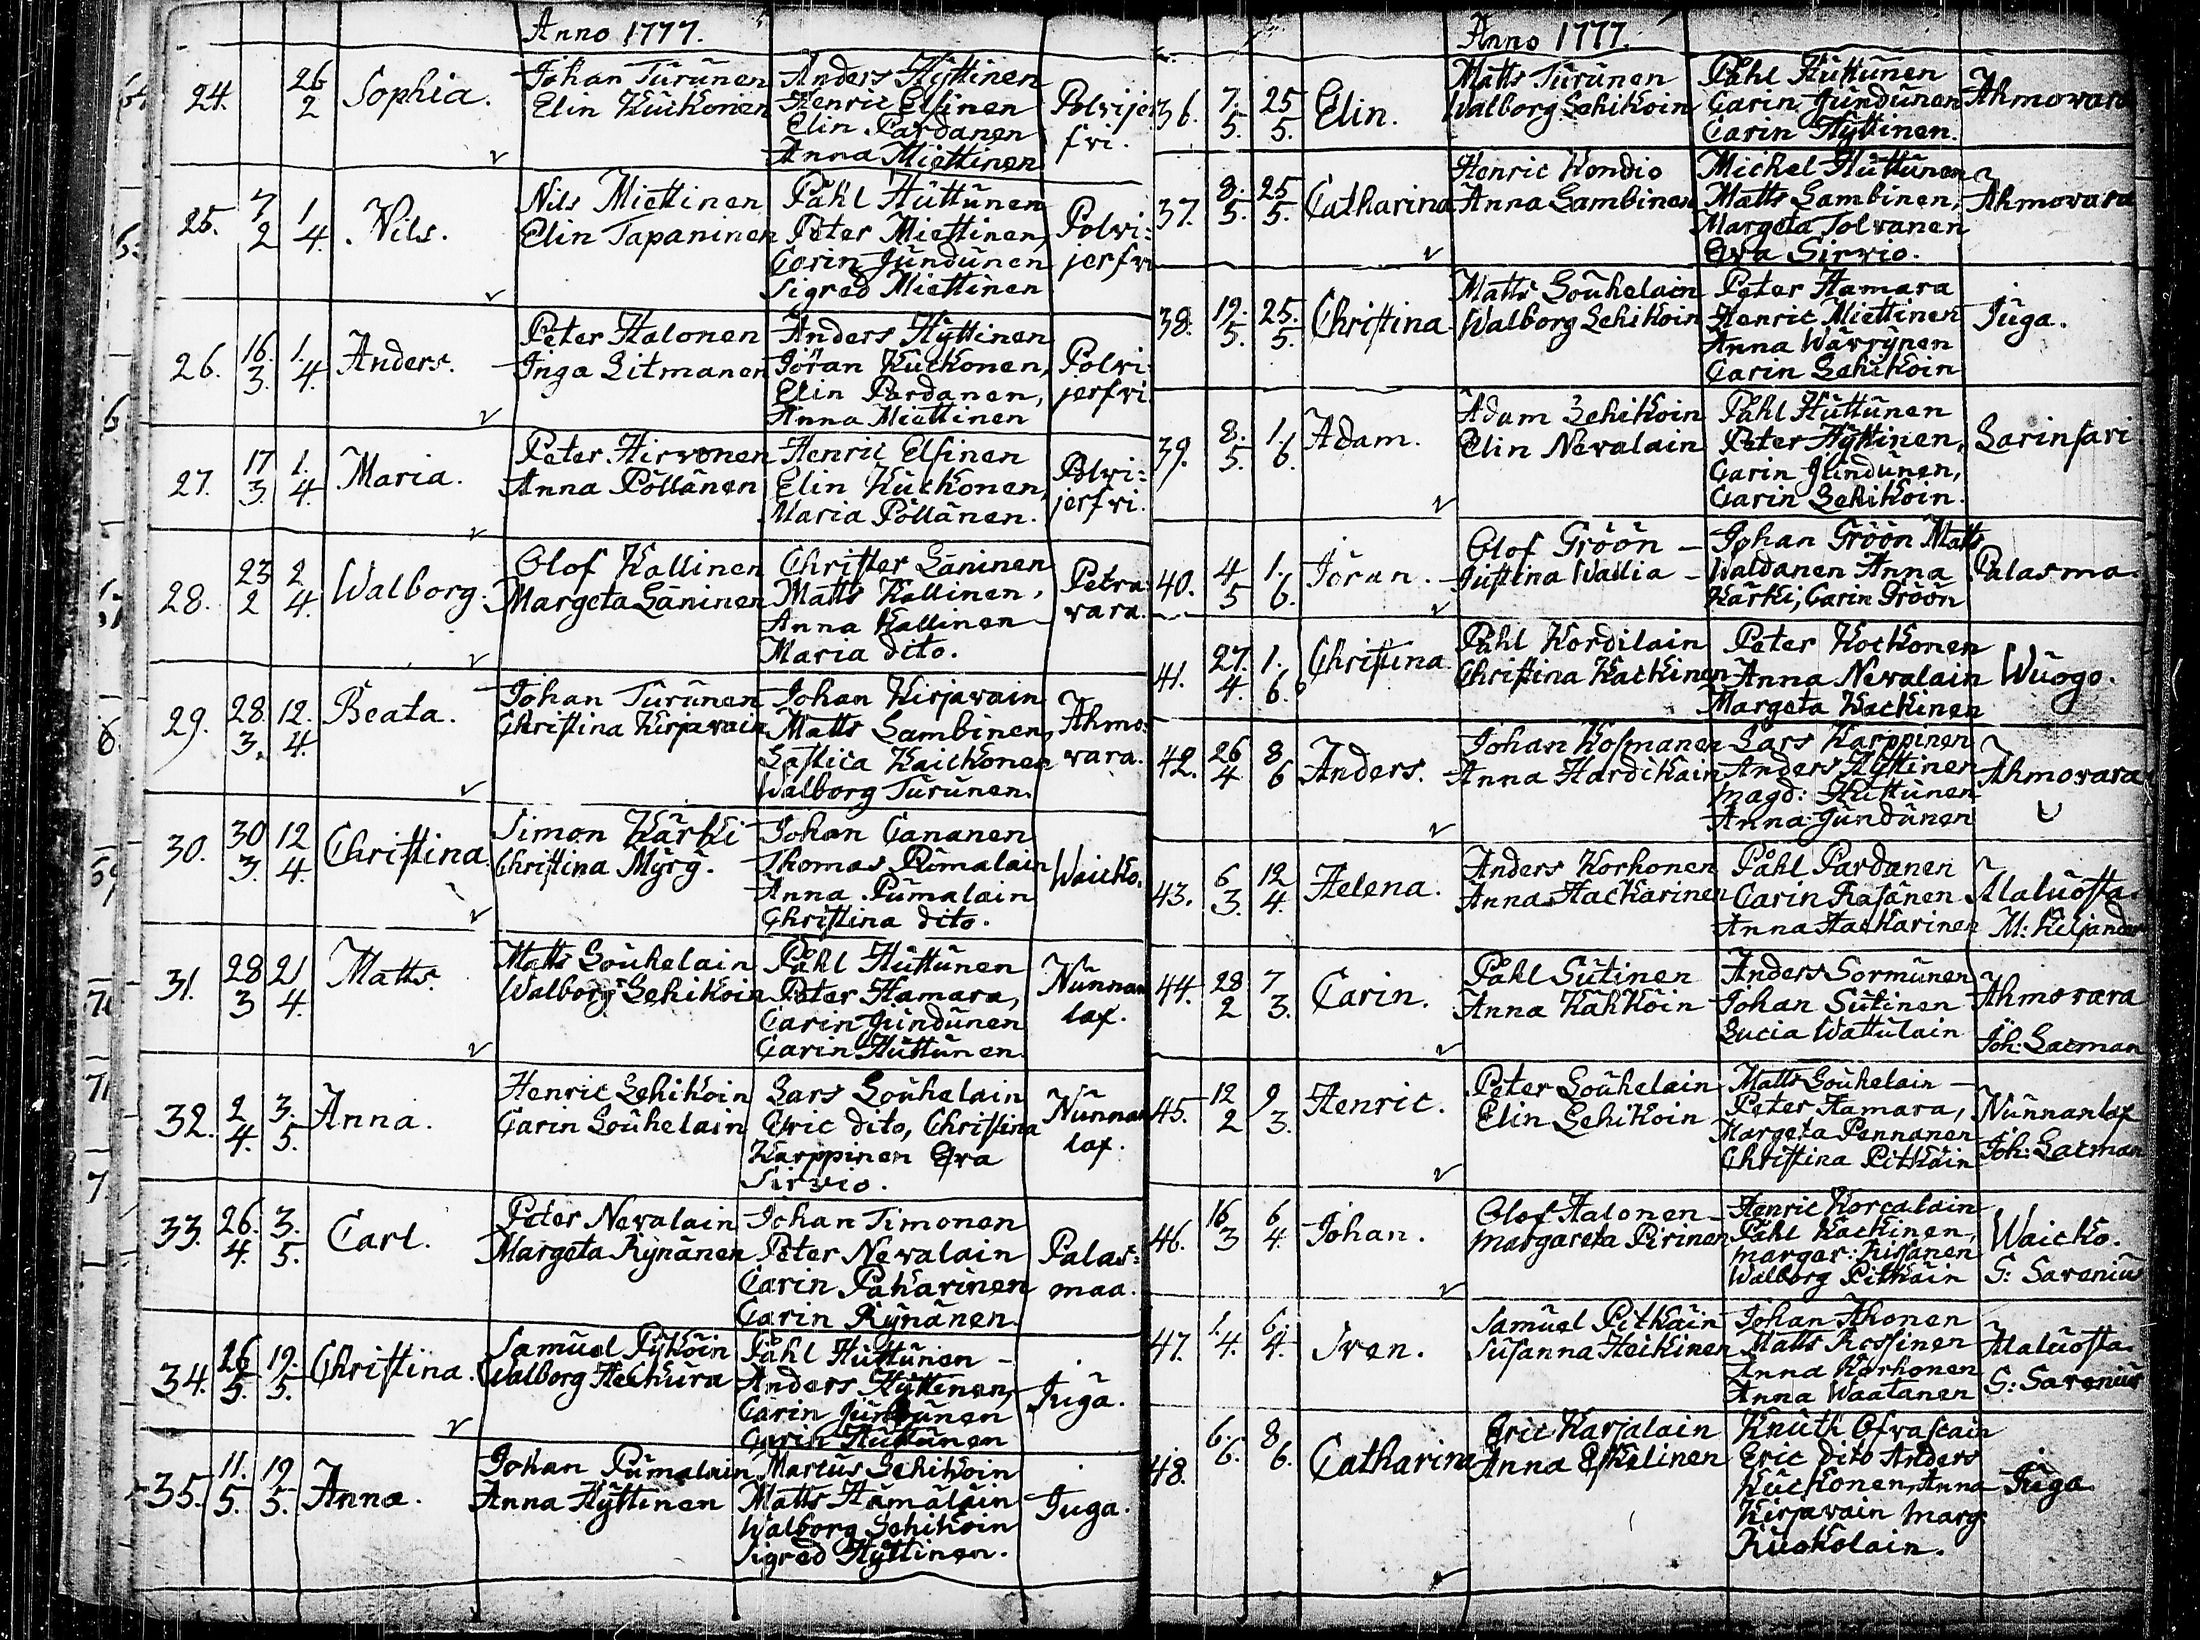 Anno 1777.
24.
26
2
Sophia.
Johan Turunen
Elin Kuckonen
Anders Hyttinen
Henric Elfinen
Elin Pardanen
Anna Miettinen
Polvijer
fvi.
25.
7
2
1
4.
Nils.
Nils Miettinen
Elin Tapaninen
Påhl Huttunen
Peter Miettinen,
Carin Jundunen
Sigred Miettinen
Polvi:
jerfvi
26.
16.
3.
1.
4.
Anders.
Peter Halonen
Inga Litmanen
Anders Hyttinen
Jöran Kuckonen,
Elin Pardanen,
Anna Miettinen
Polvi
jerfvi.
27.
17
3.
1.
4.
Maria.
Peter Hirvonen
Anna Pöllänen
Henric Elfinen
Elin Kuckonen,
Maria Pöllänen.
Polvi:
jerfvi.
28.
23
2
2
4.
Walborg.
Olof Kallinen
Margeta Laninen
Christer Laninen
Matts Kallinen,
Anna Kallinen
Maria dito.
Petra
vara.
29.
28.
3.
12.
4.
Beata.
Johan Turunen
Christina Kirjavain
Johan Kirjavain
Matts Lambinen,
Kaickonen
Walborg Turunen.
Ahmo:
vara.
30.
30
3.
12
4.
Christina.
Simon Kärki
Christina Myry.
Johan Cananen
Thomas Pumalain
Anna Pumalain
Christina dito.
Waicko.
31.
28
3
21
4.
Matts.
Matts Louhelain
Walborg Lehikoin
Påhl Huttunen
Peter Hamara,
Carin Jundunen
Carin Huttunen.
Nunnan
lax.
32.
2
4.
3.
5.
Anna.
Henric Lehikoin
Carin Louhelain
Lars Louhelain
Eric dito, Christina
Karppinen Eva
Sirvio.
Nunnan
lax.
33.
26.
4.
3.
5.
Carl.
Peter Nevalain
Margeta Rynänen
Johan Timonen
Peter Nevalain
Carin Pakarinen
Carin Rynänen.
Palas:
maa.
34.
26
5.
19.
5.
Christina.
Samuel Pyköin
Walborg Heckura
Påhl Huttunen
Anders Hyttinen,
Carin Jundunen
Carin Huttunen
Juga.
35.
11.
5.
19.
5.
Anna.
Johan Pumalain
Anna Hyttinen
Marcus Lehikoin
Matts Hämäläin
Walborg Lehikoin
Sigred Hyttinen.
Juga.
Anno 1777.
36.
7.
5.
25
5.
Elin.
Matts Turunen
Walborg Lehikoin
Påhl Huttunen
Carin Jundunen
Carin Hyttinen.
Ahmovara
37.
8.
5.
25
5.
Catharina
Henric Kondio
Anna Lambinen
Michel Huttunen
Matts Lambinen,
Margeta Tolvanen
Eva Sirvio.
Ahmovara
38.
19.
5.
25.
5.
Christina.
Matts Louhelain
Walborg Lehikoin
Peter Hamara
Henric Miettinen
Anna Wärrynen
Carin Lehikoin
Juga.
39.
8.
5.
1.
6.
Adam.
Adam Lehikoin
Elin Nevalain
Påhl Huttunen
Peter Hyttinen,
Carin Jundunen,
Carin Lehikoin.
Larinsari
40.
4
5
1.
6.
Jöran.
Olof Gröön
Justina Wallia
Johan Gröön Matts
Waldanen Anna
Kärki, Carin Gröön
Palasma.
41.
27.
4.
1.
6.
Christina.
Påhl Kordilain
Christina Kackinen
Peter Kockonen
Anna Nevalain
Margeta Kackinen
Wuogo.
42.
26
4
8
6
Anders.
Johan Kosmanen
Anna Hardikain
Lars Karppinen
Anders Hyttinen
Magd: Huttunen
Anna Jundunen
Ahmovara
43.
6
3.
12
4.
Helena.
Anders Korhonen
Anna Hackarinen
Påhl Pardanen
Carin Räsänen
Anna Hackarinen
Alaluosta.
M: Kiljander
44.
28
2
7
3.
Carin.
Påhl Sutinen
Anna Kähköin
Anders Sormunen
Johan Sutinen
Lucia Wattulain
Ahmovara
Joh: Lacman
45.
12
2
9
3.
Henric.
Peter Louhelain
Elin Lehikoin
Matts Louhelain
Peter Hamara,
Margeta Pennanen
Christina Pitkäin
Nunnanlax
Joh: Lacman
46.
16
3
6
4.
Johan.
Olof Halonen
Margareta Pirinen
Henric Korcalain
Påhl Kackinen,
Margar: Kissanen
Walborg Pitkäin
Waicko.
G: Savenius
47.
1.
4.
6.
4.
Sven.
Samuel Pitkäin
Susanna Heikinen
Johan Ahonen
Matts Rossinen
Anna Korhonen
Anna Waatanen
Alaluosta.
G: Savenius
48.
6.
6.
8
6.
Catharina
Eric Karjalain
Anna Eskelinen
Knuth Ofvascain
Eric dito Anders
Kuckonen, Anna
Kirjavain Marg:
Ruokolain.
Juga